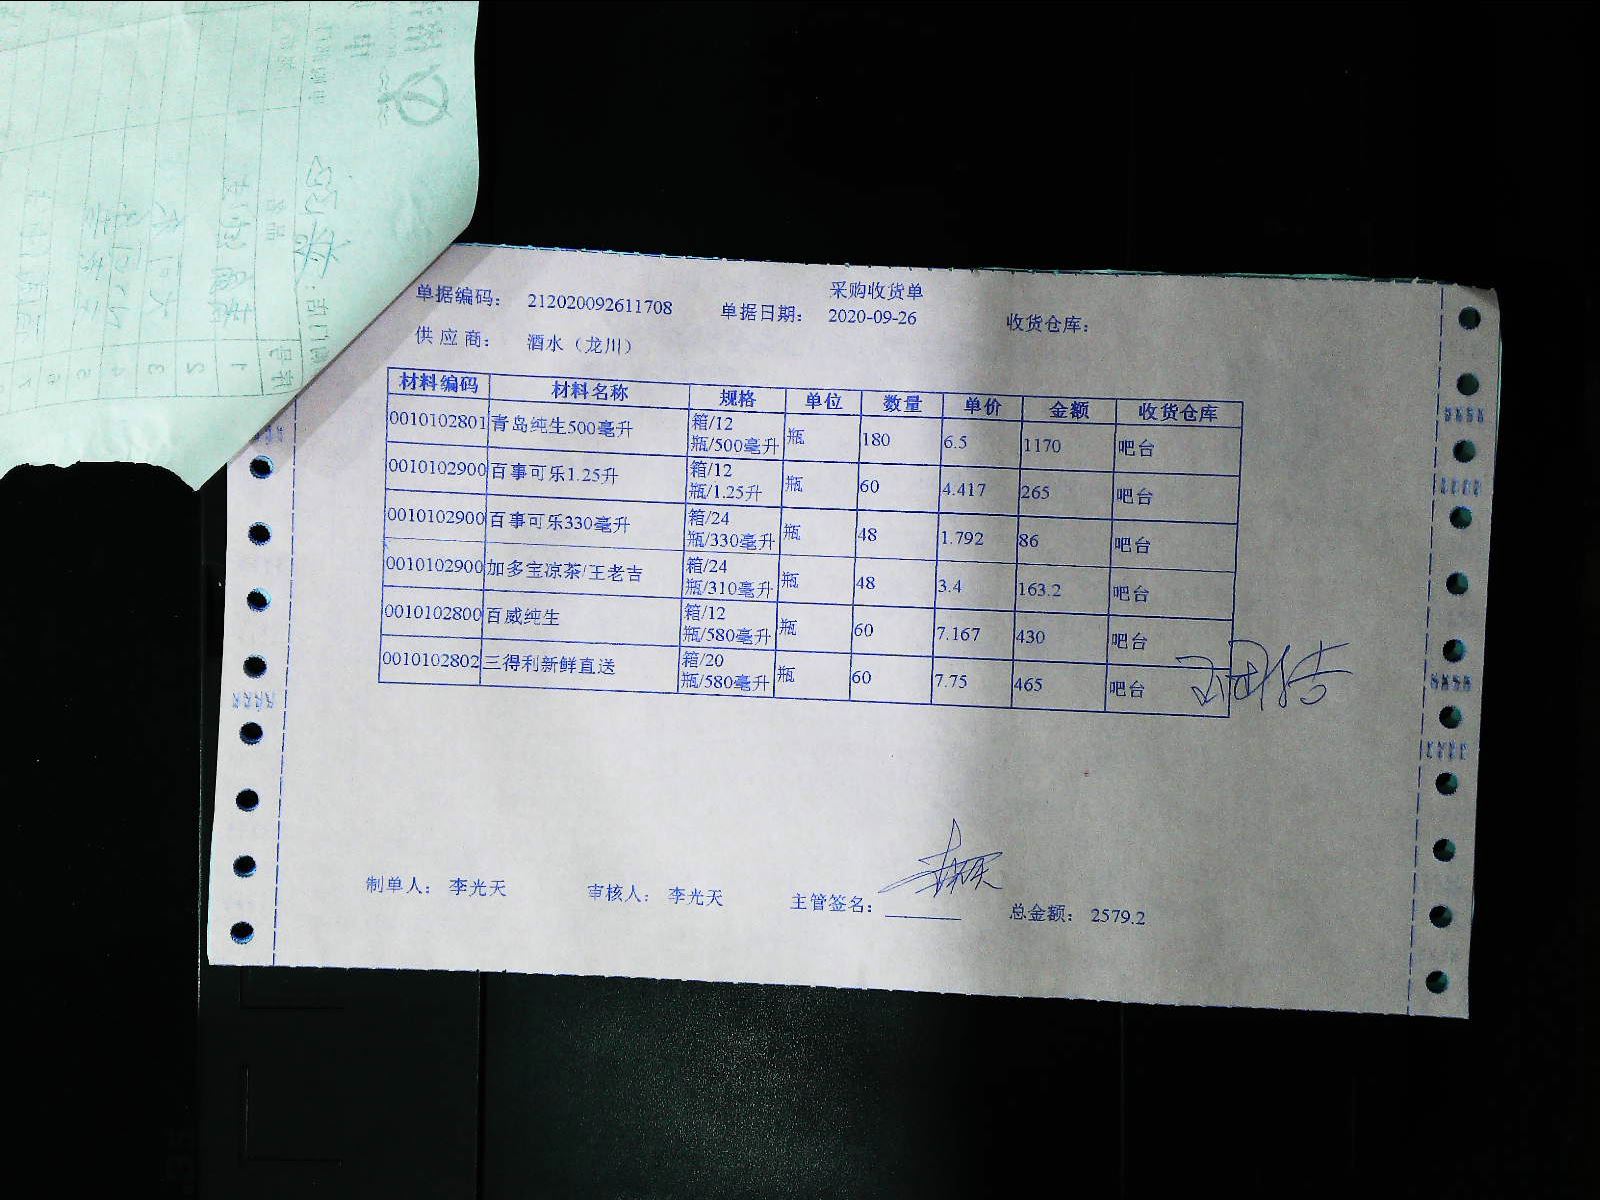 采购收货单
单据编码： 212020092611708 单据日期： 2020-09-26 收货仓库：
供 应 商： 酒水（龙川）
材料编码 材料名称 规格 单位 数量 单价 金额 收货仓库
0010102801 青岛纯生500毫升 箱/12瓶/500毫升 瓶 180 6.5 1170 吧台
0010102900 百事可乐1.25升 箱/12瓶/1.25升 瓶 60 4.417 265 吧台
0010102900 百事可乐330毫升 箱/24瓶/330毫升 瓶 48 1.792 86 吧台
0010102900 加多宝凉茶/王老吉 箱/24瓶/310毫升 瓶 48 3.4 163.2 吧台
0010102800 百威纯生 箱/12瓶/580毫升 瓶 60 7.167 430 吧台
0010102802 三得利新鲜直送 箱/20瓶/580毫升 瓶 60 7.75 465 吧台
制单人： 李光天 审核人： 李光天 主管签名： 总金额： 2579.2